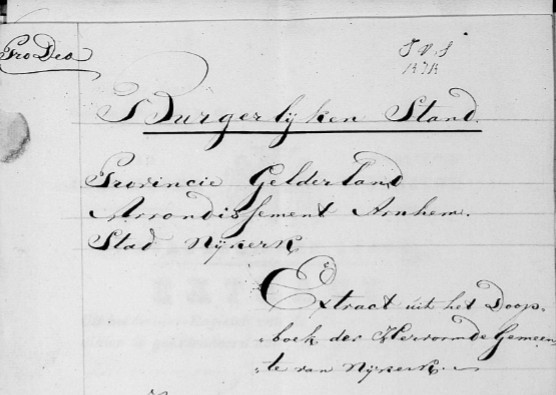 Pro Deo
Burgerlijken Stand.
Provincie Gelderland
Arrondissement Arnhem.
Stad Nijkerk
Extract uit het Doop-
boek der Hervormde Gemeen-
te van Nijkerk.